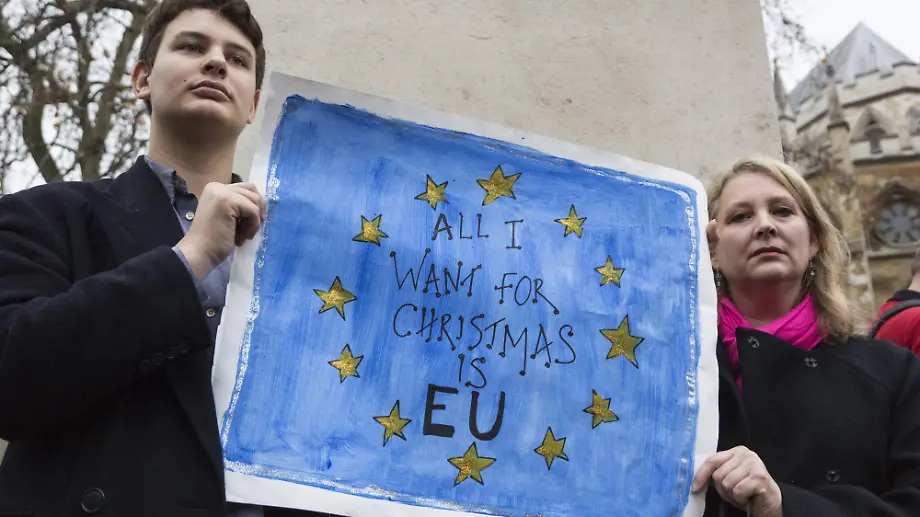 ALL I
WANT FOR
CHRISTMAS
IS
EU